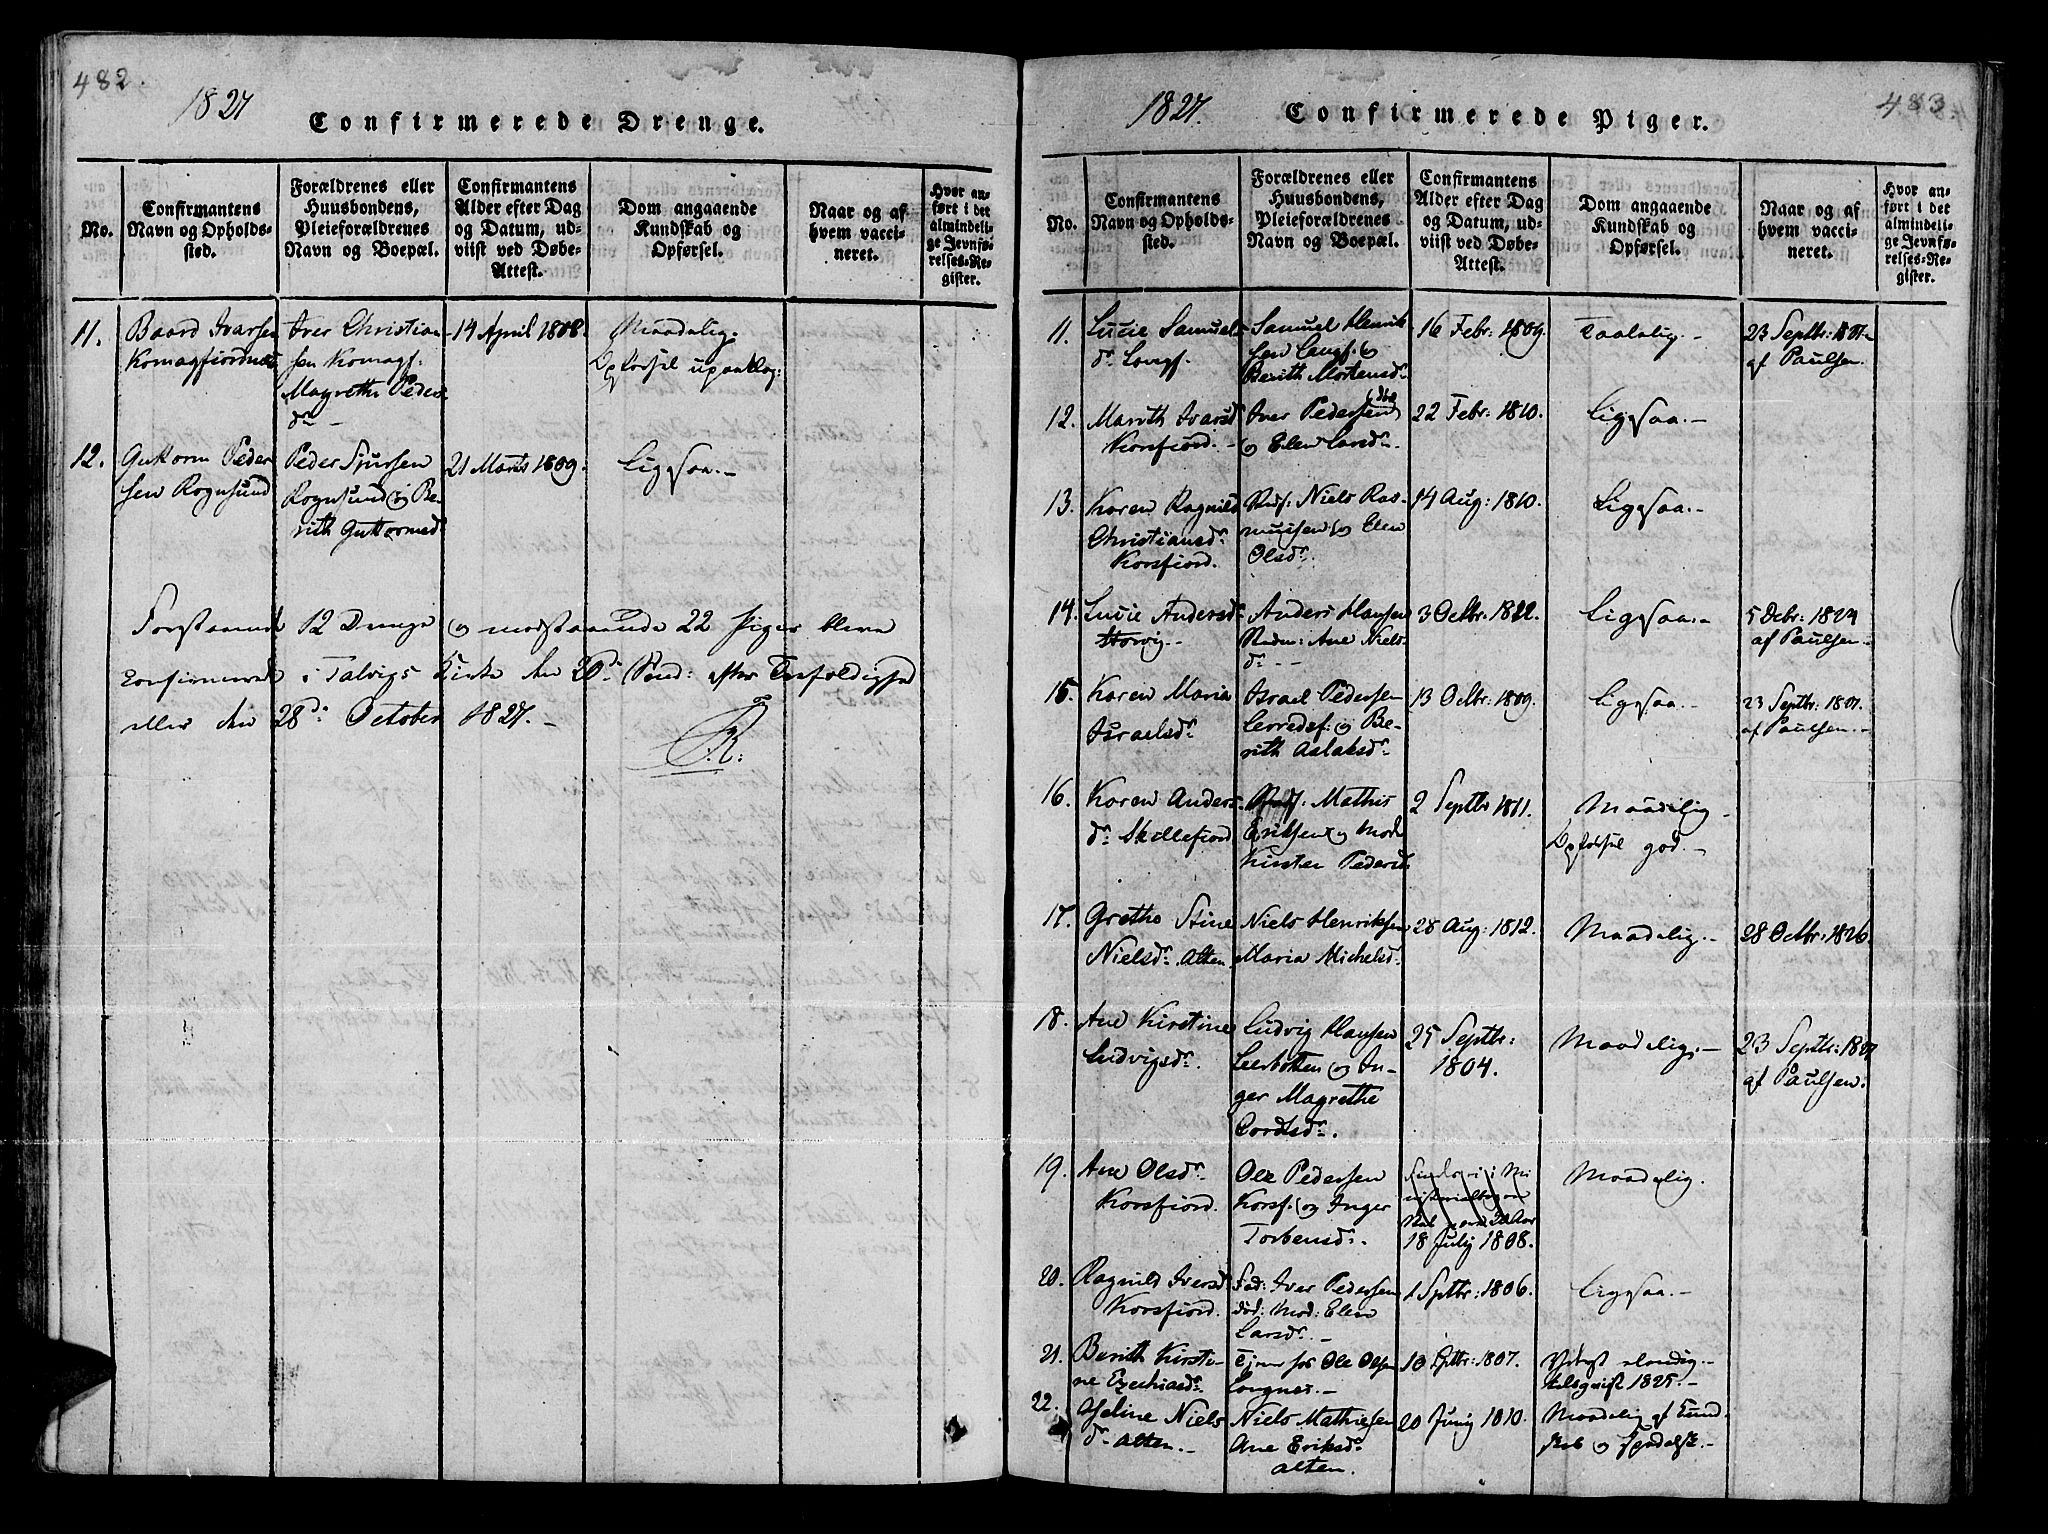 482.
1827
Confirmerede Drenge.
No.
Confirmantens
Navn og Opholds-
sted.
Forældrenes eller
Huusbondens,
Pleieforældrenes
Navn og Boepæl.
Confirmantens
Alder efter Dag
og Datum, ud-
viist ved Døbe-
Attest.
Dom angaaende
Kundskab og
Opførsel.
Naar og af
hvem vacci-
neret.
Hvor an-
ført i det
almindeli-
ge Jevnfø-
relses-Re-
gister.
11.
Baard Ivarsen
Komagfiordnæs
Iver Christian-
sen Komagf:
Magrethe Peders
dr –
14 April 1808.
Maadelig.
Opførsel upaaklag:
12.
Guttorm Peder
sen Rognsund
Peder Sjursen
Rognsund og Be-
rith Guttormsd
21 Marts 1809.
Ligesaa.–
Forstaaende 12 Drenge og modstaaende 22 Piger bleve
confirmerede i Talvigs Kirke den 20de Sønd: efter Trefoldighed
eller den 28de October 1827.–
R:
1827.
Confirmerede Piger.
483
No.
Confirmantens
Navn og Opholds-
sted.
Forældrenes eller
Huusbondens,
Pleieforældrenes
Navn og Boepæl.
Confirmantens
Alder efter Dag
og Datum, ud-
viist ved Døbe-
Attest.
Dom angaaende
Kundskab og
Opførsel.
Naar og af
hvem vacci-
neret.
Hvor an-
ført i det
almindeli-
ge Jevnfø-
relses-Re-
gister.
11.
Lucie Samuels
dr Langf.
Samuel Henrik
sen Langf. og
Berith Mortensdr
16 Febr: 1809.
Taalelig.–
23 Septbr: 1827
af Paulsen.
12.
Marith Ivarsd
Korsfiord.–
Iver Pedersen
og Elen Larsdr
22 Febr: 1810.
Ligesaa.–
13.
Karen Ragnild
Christiansdr
Korsfiord.
Niels Ras-
mussen og Elen
Olsdr.
14 Aug: 1810.
Ligesaa.–
14.
Lucie Andersdr
Anders Hansen
Ane Niels
dr – –
3 Octbr: 1822.
Ligesaa.–
5 Debr: 1824
af Paulsen–
15.
Karen Maria
Israelsdr
Israel Pedersen
Leeredsf: og Be-
rith Aslaksdr
13 Octbr: 1809.
Ligesaa.–
23 Septbr: 1827.
af Paulsen.–
16.
Karen Anders
dr Skillefiord
Mathis
Eriksen og Mod
Kirsten Pedersd
2 Septbr 1811.
Maadelig
Opførsel god.–
17.
Grethe Stine
Nielsdr. Alten
Niels Henriksen
Maria Michelsd.
28 Aug: 1812.
Maadelig.–
28 Octbr: 1826.
18.
Ane Kirstine
Ludvigsdr.
Ludvig Hansen
Leerbotten og In-
ger Magrethe
Cordtsdr.
25 Septbr:
1804.
Maadelig.–
23 Septbr: 1827
af Paulsen.
19.
Ane Olsdr.
Korsfiord.
Ole Pedersen
Korsf. og Inger
Torbensdr.
18 July 1808.
Maadelig.
20.
Ragnild Iversd
Korsfiord.
Fad: Iver Pedersen
død: Mod: Elen
Larsdr.–
1 Septbr: 1806.
Ligesaa.–
21.
Berith Kirsti-
ne Ezechiasdr.
Tjener for Ole Olsen
Langnes.–
10 Septbr: 1807.
1825.–
22.
Aseline Niels
dr Alten.–
Niels Mathiesen
Ane Eriksdr
Alten.
20 Juny 1810.
Maadelig af Kund-
skab og